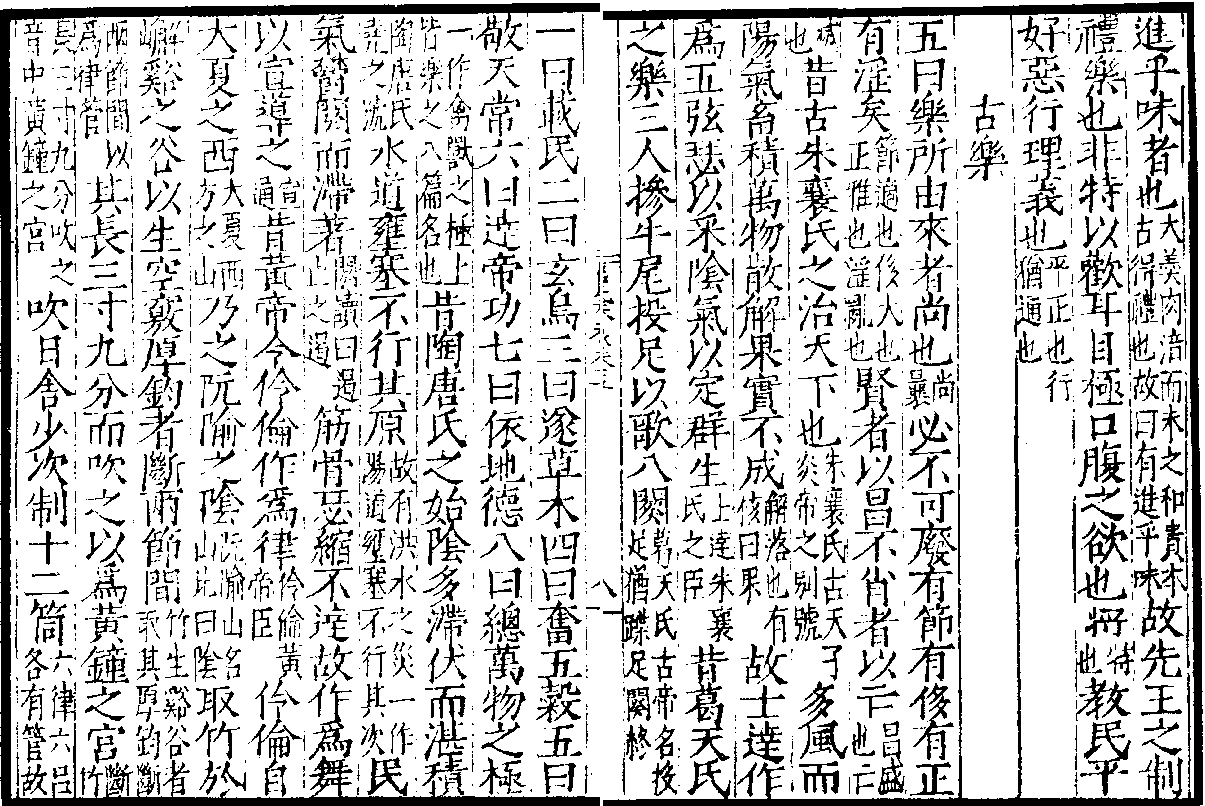 進乎味者也大羹肉湆而未之和貴本古得禮也故曰有進乎味故先王之制
禮樂也非特以歡耳目極口腹之欲也將特也教民平
好惡行理義也平正也行猶通也
古樂
五曰樂所由來者尚也尚曩必不可廢有節有侈有正
有淫矣節適也侈大也正雅也淫亂也賢者以昌不肖者以亡昌盛也亡
滅也昔古朱襄氏之治天下也朱襄氏古天子炎帝之別號多風而
陽氣畜積萬物散解果實不成解落也有核曰果故士達作
為五弦瑟以采陰氣以定群生士達朱襄氏之臣昔葛天氏
之樂三人摻牛尾投足以歌八闋葛天氏古帝名投足猶蹀足闋終
一曰載民二曰玄鳥三曰遂草木四曰奮五穀五曰
敬天常六曰達帝功七曰依地德八曰總萬物之極
一作禽獸之極上皆樂之八篇名也昔陶唐氏之始陰多滯伏而湛積
陶唐氏堯之號水道壅塞不行其原故有洪水之災一作陽道壅塞不行其次民
氣鬱閼而滯著閼讀曰遏止之遏筋骨瑟縮不達故作為舞
以宣導之宣通昔黃帝令伶倫作為律伶倫黃帝臣伶倫自
大夏之西大夏西方之山乃之阮隃之陰阮隃山名山北曰陰取竹於
解嶰谿之谷以生空竅厚鈞者斷兩節間竹生谿谷者取其厚鈞斷
兩節間以為律管其長三寸九分而吹之以為黃鐘之宮竹斷
長三寸九分吹之音中黃鐘之宮吹曰舍少次制十二筒六律六呂各有管故